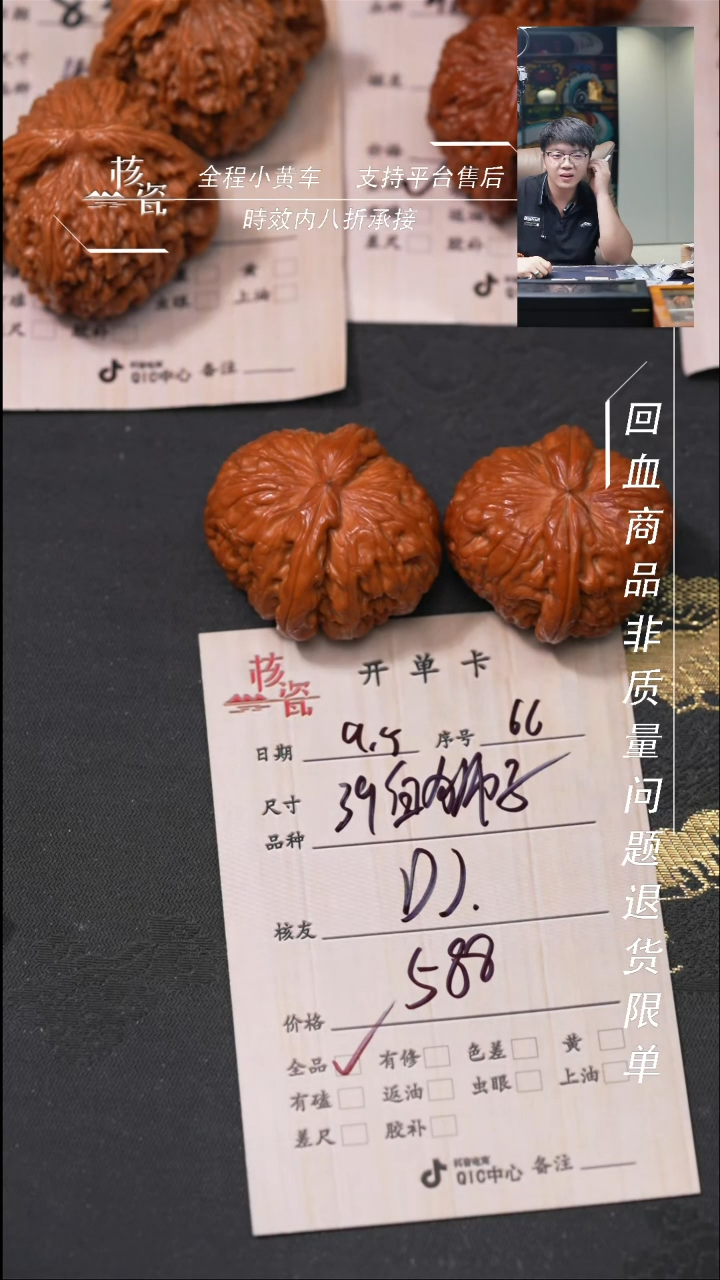 核瓷
全程小黄车 支持平台售后
時效内八折承接
黄
虫眼 上油
差尺 胶补
抖音电商
QIC中心 备注
价格
差尺 胶补
回血商品非质量问题退货限单
核瓷 开单卡
日期 9.5 序号 66
尺寸 39
品种 狮子
核友 DJ.
价格 588
全品 ✓ 有修 色差 黄
有磕 返油 虫眼 上油
差尺 胶补
抖音电商
QIC中心 备注